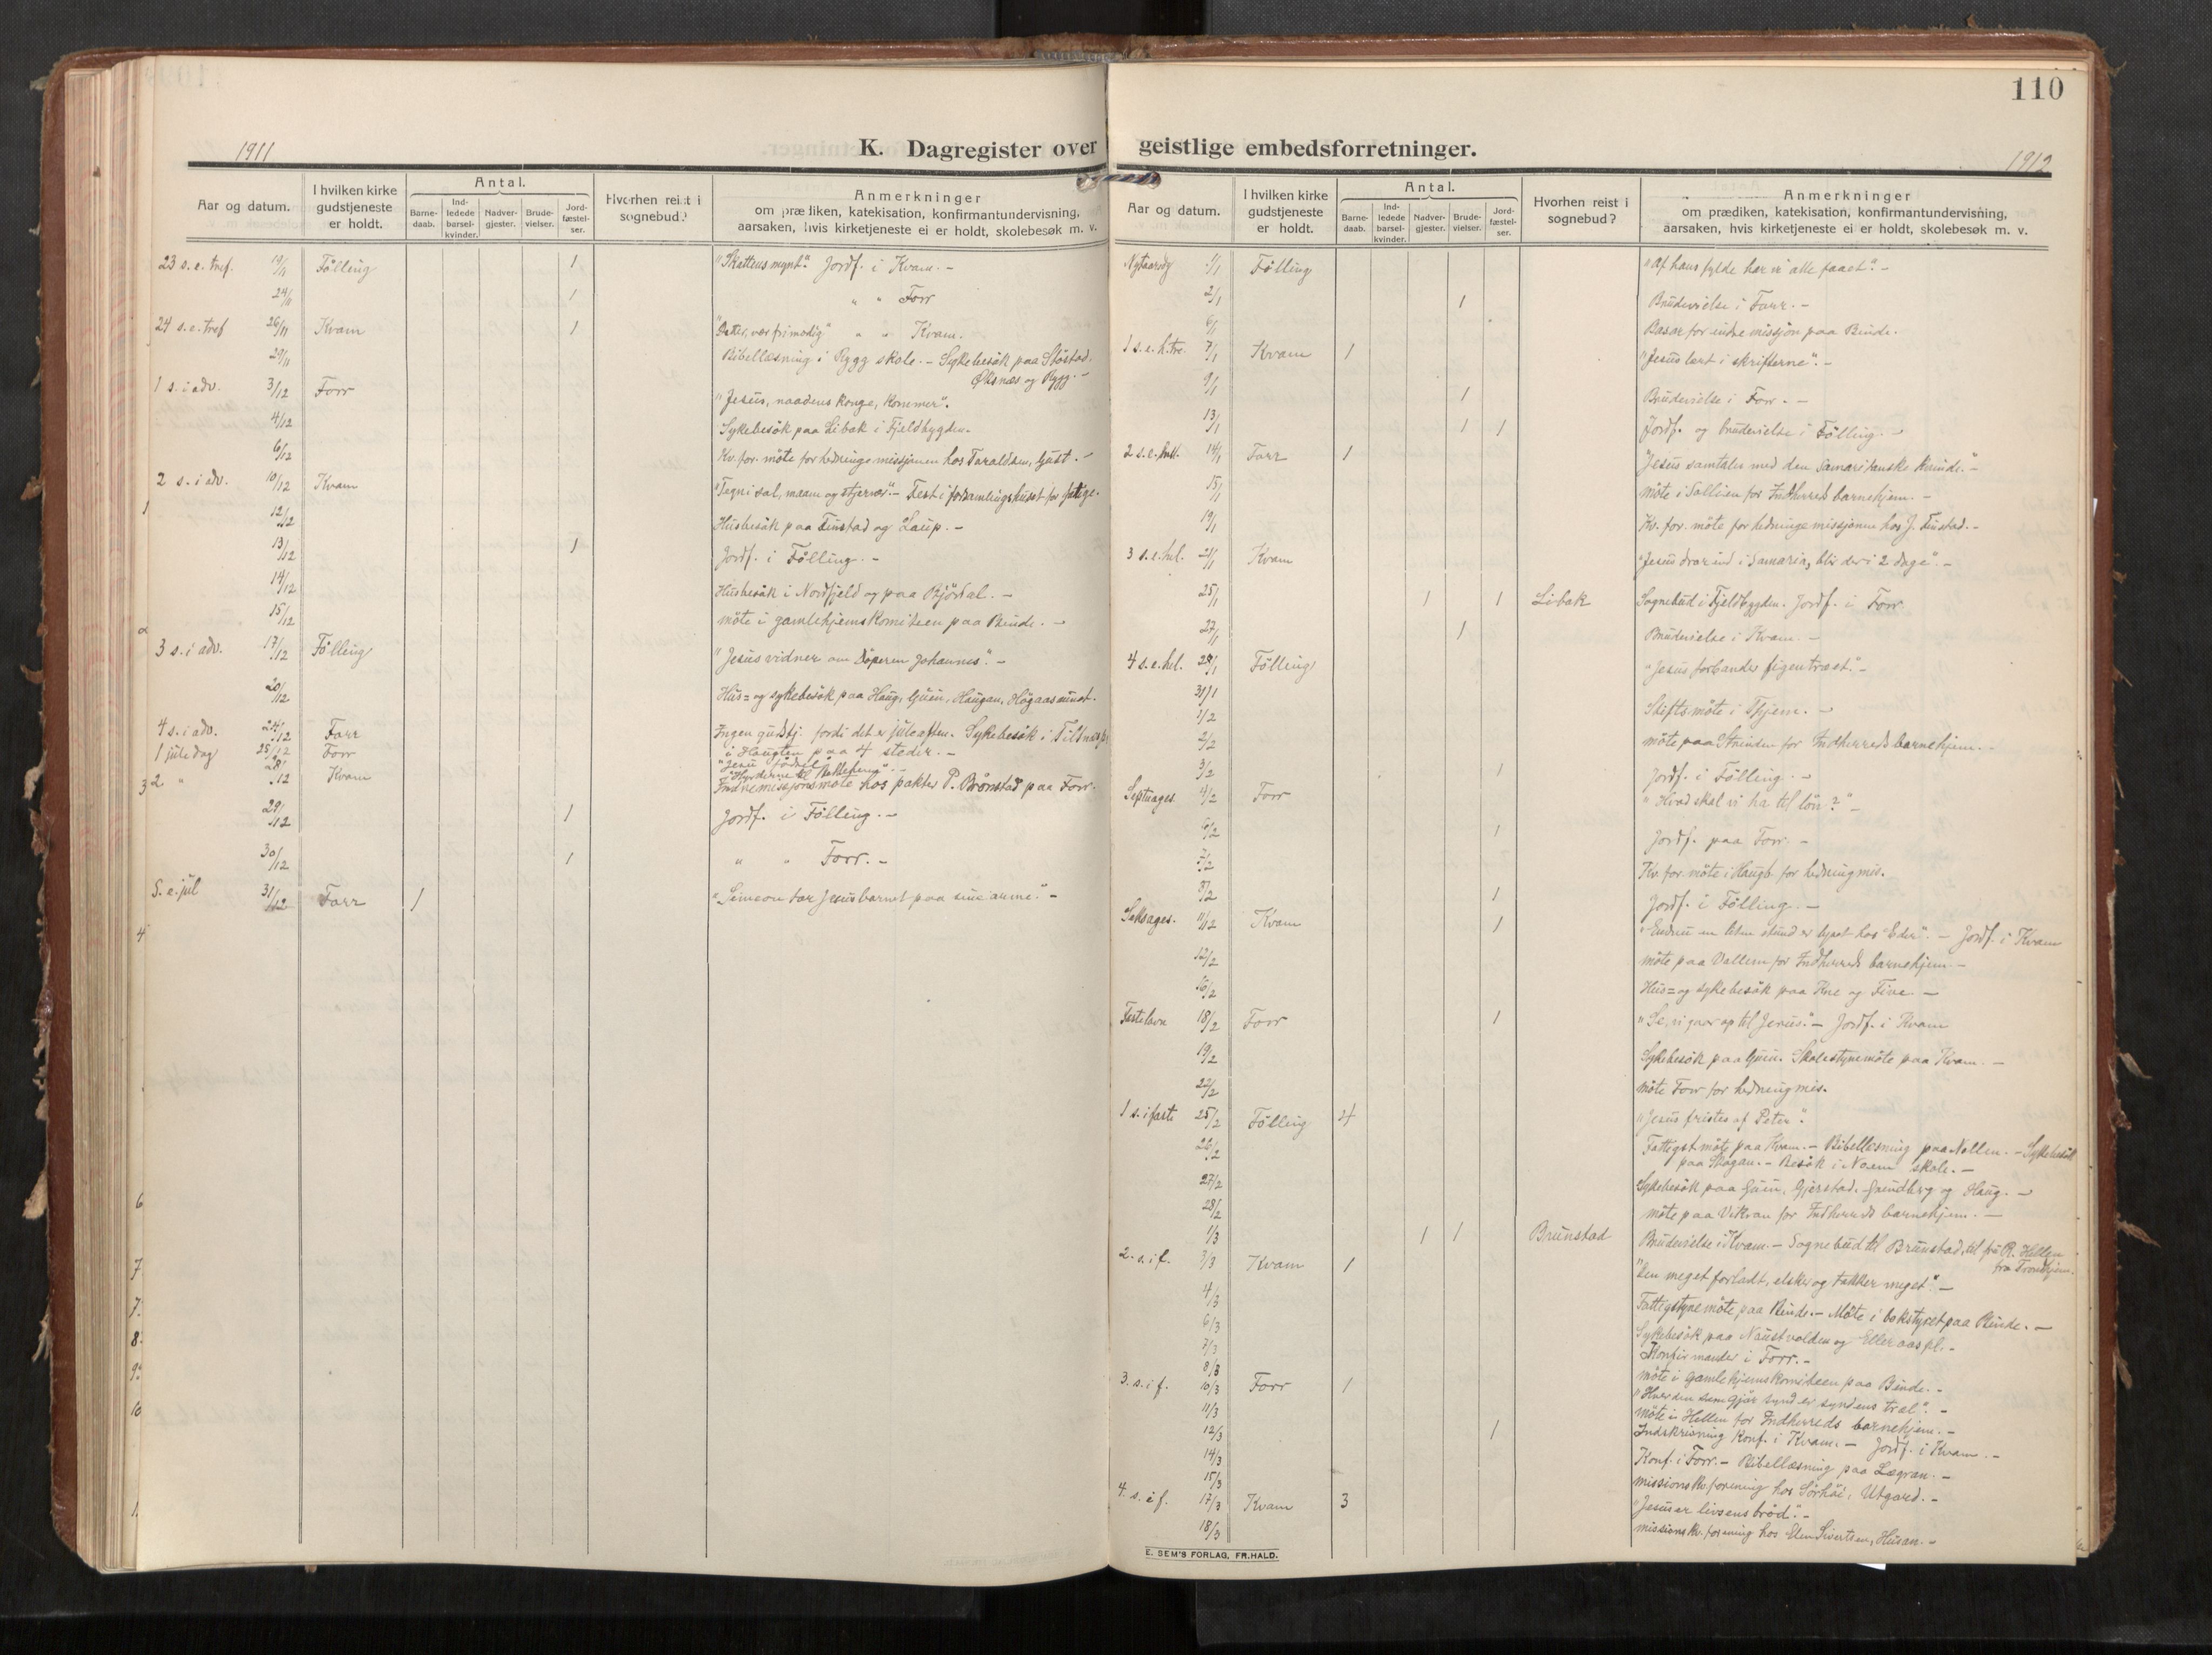 110
1911
K. Dagregister over
Aar og datum.
I hvilken kirke gudstjeneste er holdt.
Antal.
Barne-daab.
Ind-ledede barsel-kvinder.
Nadver-gjester.
Brude-vielser.
Jord-fæstel-ser.
Hvorhen reist i sognebud?
Anmerkninger
om prædiken, katekisation, konfirmantundervisning,
aarsaken, hvis kirketjeneste ei er holdt, skolebesøk m. v.
23 s. e. tref. 19/11 Fölling 1 "Skattens mynt." Jordf. i Kvam. -
24/11 1 " " Forr
24 s. e. tref 26/11 Kvam 1 vær frimodig" " " Kvam.
29/11 Bibellæsning i Rygg skole. - Sykebesök paa Stöstad.
Öksnæs og Rygg. -
1 s. i adv. 3/12 Forr "Jesus, naadens konge, kommer".
4/12 Sykebesök paa Libak i Fjeldbygden.
6/12 Kv. for. möte for hedningemissjonen hos Taraldsen, -
2 s. i adv. 10/12 Kvam "Tegn i sol, maane og stjerner". - Fest i forsamlingshuset for fatige.
12/12 Husbesök paa Finstad og Laup. -
13/12 1 Jordf. i Fölling. -
14/12 Husbesök i Nordfjeld og paa Björdal. -
15/12 möte i gamlehjemskomiteen paa Binde. -
3 s. i adv. 17/12 Fölling "Jesus vidner om Döperen Johannes". -
20/12 Hus= og sykebesök paa Haug, Haugan,
4 s. i adv. 24/12 Forr Ingen gudstj. fordi det er juleaften. Sykebesök i
i paa 4 steder. -
1 juledag 25/12 Forr "Jesu födsel"
2 " Kvam
28/12 Indremissjonsmöte hos pakter P. Brönstad paa Forr.
29/12 Jordf. i Fölling. - 1
30/12 1 " " Forr. -
S. e. jul 31/12 Forr 1 "Simeon tar Jesusbarnet paa sine arme." -
geistlige embedsforretninger.
1912
Aar og datum.
I hvilken kirke gudstjeneste er holdt.
Antal.
Barne-daab.
Ind-ledede barsel-kvinder.
Nadver-gjester.
Brude-vielser.
Jord-fæstel-ser.
Hvorhen reist i sognebud?
Anmerkninger
om prædiken, katekisation, konfirmantundervisning,
aarsaken, hvis kirketjeneste ei er holdt, skolebesøk m. v.
Nytaarsdg 1/1 Fölling "Af hans fylde har vi alle faaet". -
2/1 1 Brudevielse i Forr. -
6/1 Basar for indre missjon paa Binde.
1 s. e. h. tre. 7/1 Kvam 1 "Jesus lært i skrifterne". -
9/1 1 Brudevielse i Forr. -
13/1 1 1 Jordf. og brudevielse i Fölling. -
2 s. e. 14/1 Forr 1 "Jesus samtaler med den Samaritanske kvinde." -
15/1 möte i for Indherreds barnehjem. -
19/1 Kv. for. möte for hedningemissjonen hos J. Finstad. -
3 s. e. hel. 21/1 Kvam "Jesus drar ind i Samaria, blir der i 2 dage". -
25/1 1 1 Libak Sognebud i Fjeldbygden. Jordf. i Forr
27/1 1 Brudevielse i Kvam. -
4 s. e. hel. 28/1 Fölling "Jesus forbander figentræet". -
31/1 Stiftsmöte i -
1/2
2/2 möte paa for Indherreds barnehjem. -
3/2 1 Jordf. i Fölling. -
Septuages. 4/2 Forr "Hvad skal vi ha til lön?" -
6/2 1 Jordf. paa Forr. -
7/2 Kv. for. möte i Haugb. for hedningmis.
8/2 1 Jordf. i Fölling. -
Seksages. 11/2 Kvam 1 "Endnu en liten stund er lyset hos Eder". - Jordf. i Kvam
12/2 möte paa Vallem for Indherreds barnehjem. -
16/2 Hus= og sykebesök paa Kne og Five -
Fastelavn 18/2 Forr 1 "Se, vi gaar op til Jerus." - Jordf. i Kvam
19/2 Sykebesök paa Skolestyremöte paa Kvam. -
22/2 möte Forr for hedningmis.
1 s. i faste 25/2 Fölling 4 "Jesus fristes af Peter".
26/2 Fattigst. möte paa Kvam. - Bibellesning paa Nollen. - Sykebesök
paa Skogan. - Besök i skole. -
27/2 Sykebesök paa Gjerstad. Grundberg og Haug. -
28/2 möte paa Vikran for Indherreds barnehjem. -
1/3 1 1 Brunstad Brudevielse i Kvam. - Sognebud til Brunstad, til fru R. Hellem
fra Trondhjem.
2. s. i f. 3/3 Kvam 1 "Den meget forladt, elsker og takker meget" -
4/3 Fattigstyremöte paa Binde. - Möte i bokstyret paa Binde. -
6/3 Sykebesök paa Naustvolden og
7/3 Konfirmander i Forr. -
8/3 möte i gamlehjemskomiteen paa Binde. -
3. s. i f. 10/3 Forr 1 "Hver den som gjör synd er syndens træl". -
11/3 möte i Hellem for Indherreds barnehjem. -
12/3 1 Indskrivning konf. i Kvam. - Jordf. i Kvam. -
14/3 Konf. i Forr. - Bibellæsning paa Lægran. -
15/3 missionskv.forening hos Utgard. -
4. s. i f. 17/3 Kvam 3 "Jesus er livsens bröd". -
18/3 missionskv.forening hos Sivertsen, Husan. -
E. SEM'S FORLAG, FR.HALD.